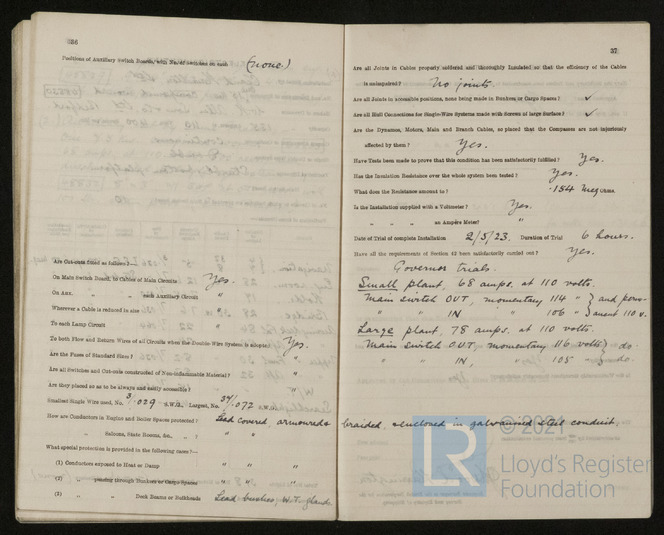 36
Positions of Auxiliary Switch Boards, with No. of Switches on each (none.)
Are Cut-outs fitted as follows?—
On Main Switch Board, to Cables of Main Circuits Yes.
On Aux. " " each Auxiliary Circuit "
Wherever a Cable is reduced in size "
To each Lamp Circuit "
To both Flow and Return Wires of all Circuits when the Double Wire System is adopted Yes.
Are the Fuses of Standard Sizes? "
Are all Switches and Cut-outs constructed of Non-inflammable Material? "
Are they placed so as to be always and easily accessible? "
Smallest Single Wire used, No. 3/.029 S.W.G., Largest, No. 37/.072
How are Conductors in Engine and Boiler Spaces protected? Lead covered, armoured & braided, & enclosed in galvanised steel conduit.
" Saloons, State Rooms, &c., " ? " "
What special protection is provided in the following cases?—
(1) Conductors exposed to Heat or Damp " " "
(2) " passing through Bunkers or Cargo Spaces " " "
(3) " " " Deck Beams or Bulkheads Lead bushes, W.T. glands.
37
Are all Joints in Cables properly soldered and thoroughly Insulated so that the efficiency of the Cables
is unimpaired? No joints.
Are all Joints in accessible positions, none being made in Bunkers or Cargo Spaces? ✓
Are all Hull Connections for Single-Wire Systems made with Screws of large Surface? ✓
Are the Dynamos, Motors, Main and Branch Cables, so placed that the Compasses are not injuriously
affected by them? Yes.
Have Tests been made to prove that this condition has been satisfactorily fulfilled? Yes.
Has the Insulation Resistance over the whole system been tested? Yes.
What does the Resistance amount to? .154 Meg Ohms.
Is the Installation supplied with a Voltmeter? Yes.
" " " " an Ampère Meter? "
Date of Trial of complete Installation 2/5/23. Duration of Trial 6 hours.
Have all the requirements of Section 42 been satisfactorily carried out? Yes.
Governor trials.
Small plant, 68 amps. at 110 volts.
Main switch OUT, momentary 114 " } and perm-
" " IN " 106 " } anent 110 v.
Large plant, 78 amps. at 110 volts.
Main switch OUT, momentary 116 volts } do.
" " IN, " 105 " } do.
© 2021
LR
Lloyd's Register
Foundation